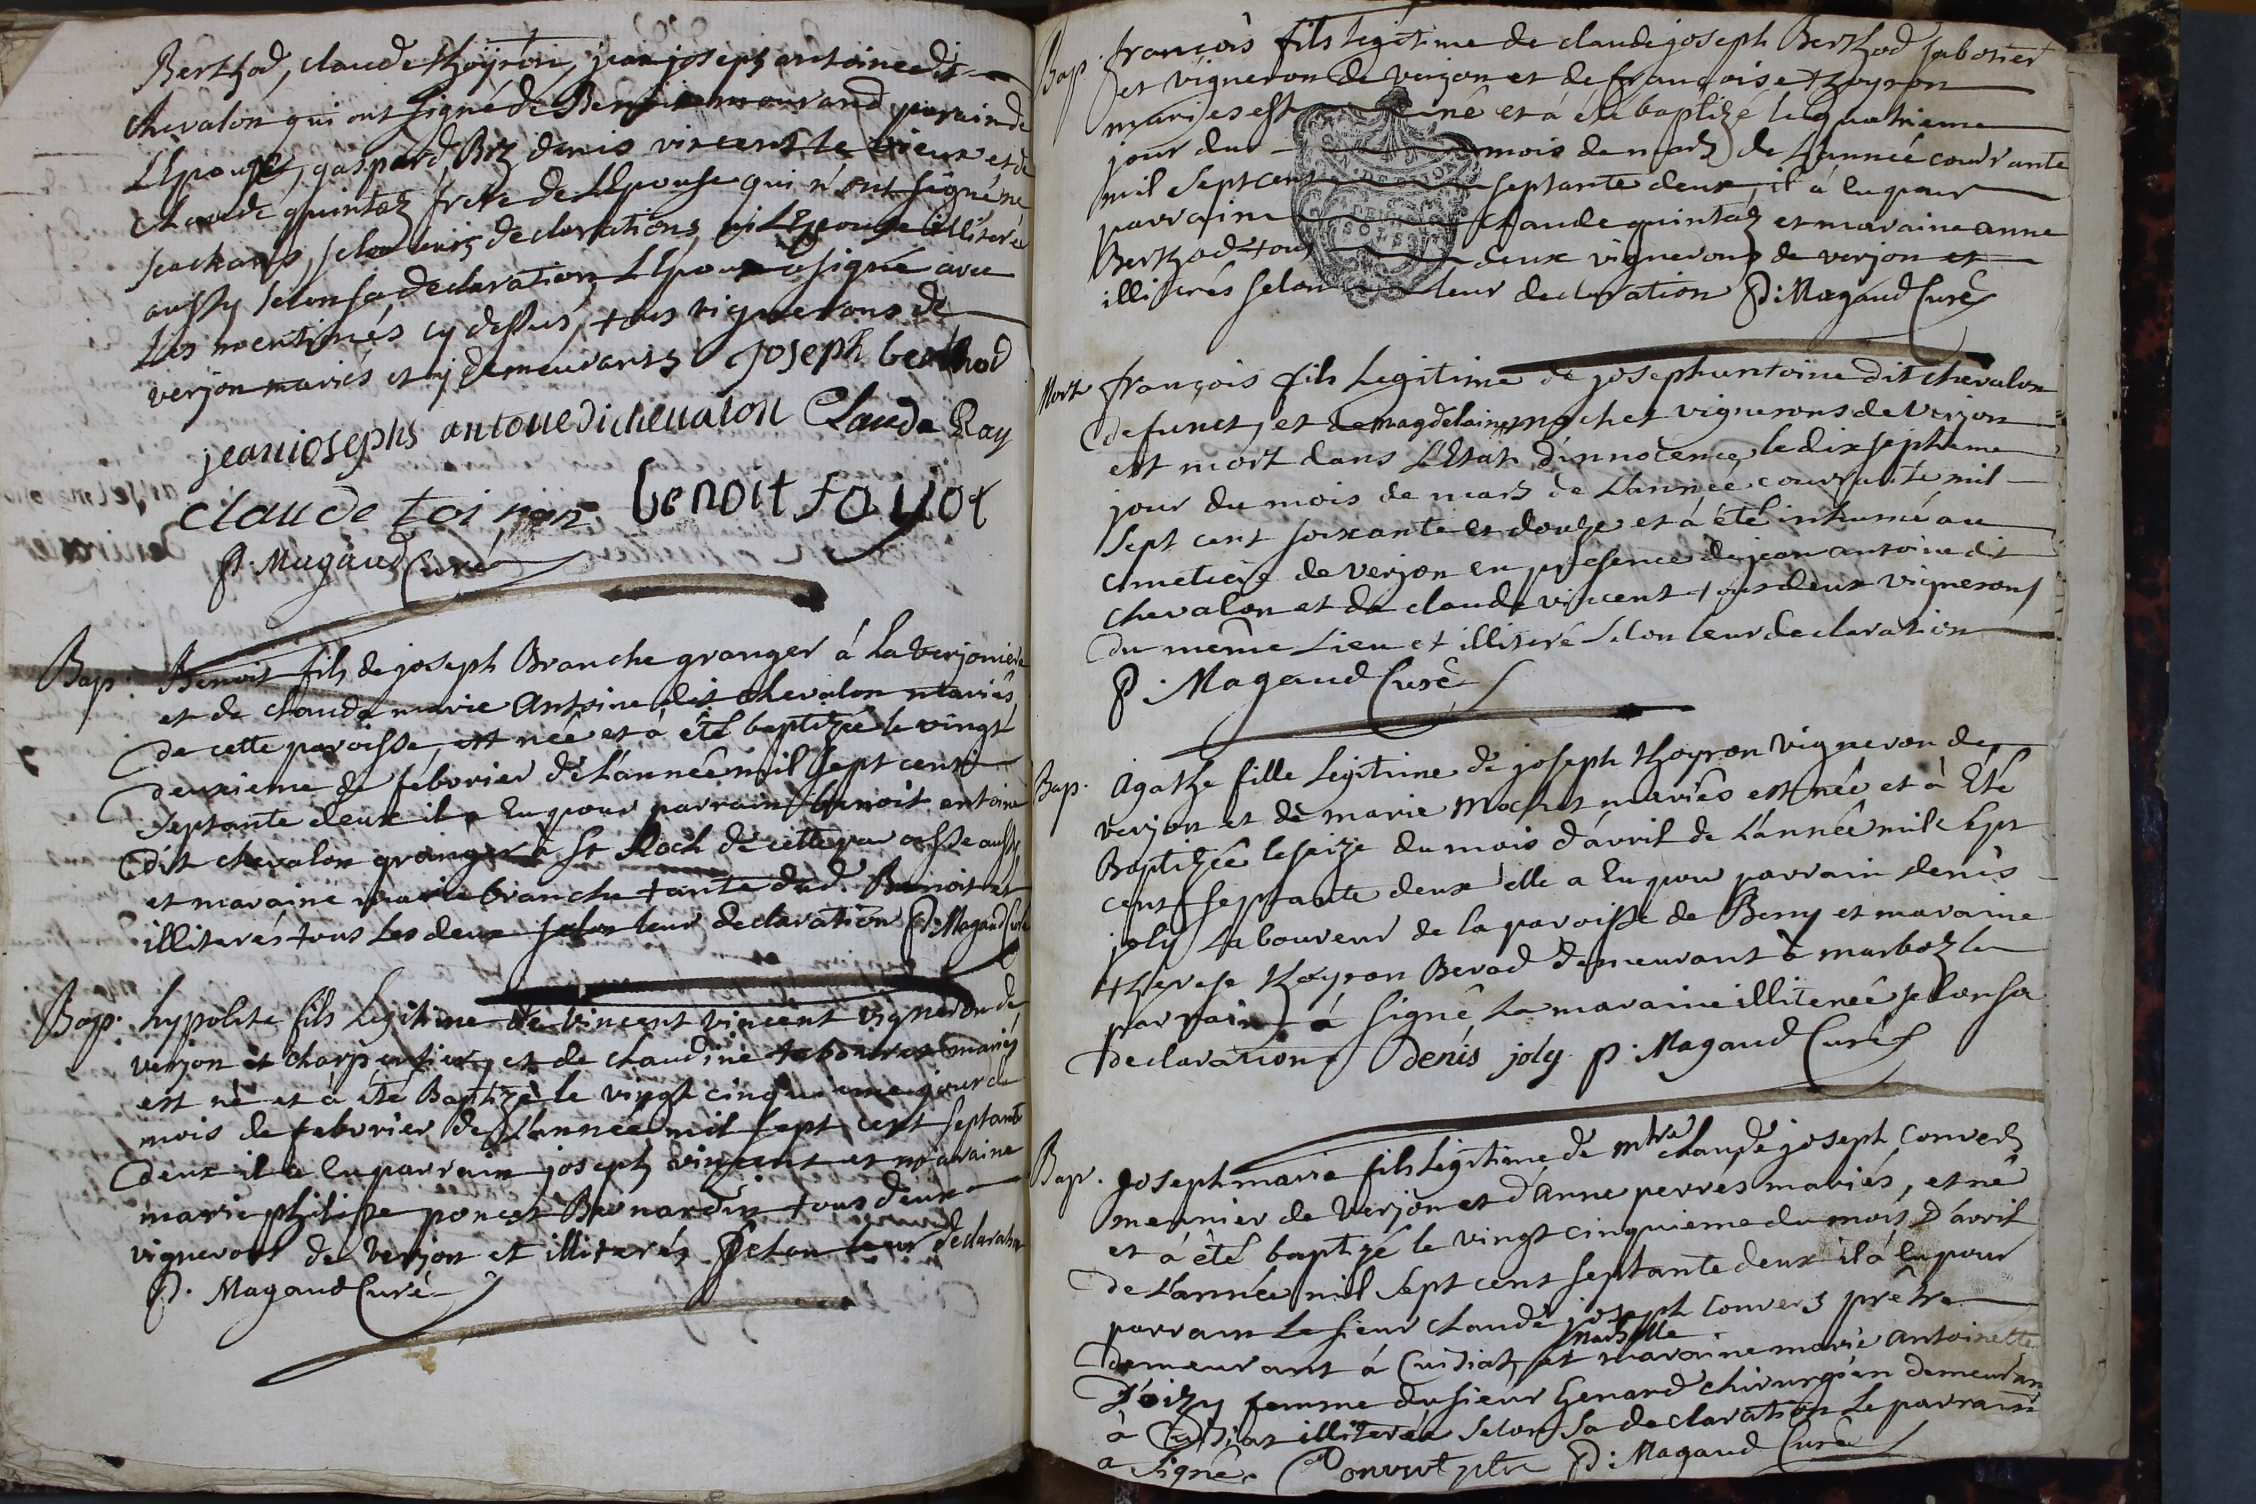 Berthod, claude thoÿron, jean joseph antoine dit
chevalon qui ont signé de Benoit mourand parain de
L'Epoux, gaspard Biz denis vincent le vieux et de
claude quintaz frere de L'Epouse qui n'ont signé ne
sachants, selon leurs declarations, ni L'Epouse illiteré
aussy selon sa declaration L'Epoux a signé avec
Les mentionnés cy dessus, tous vignerons de
verjon mariés et y demeurants joseph berthod
jean iosephs antoine dichevalon Claude Ray
claude toiron benoit foyot
P. Magaud Curé
Bap. Benoit fils de joseph Branche granger á La verjoniere
et de claude marie Antoine dit chevalon mariés
de cette paroisse, est née et á êté baptizée le vingt
deuxieme de février de L'année mil sept cent
septante deux il a Eu pour parrain benoit antoine
dit chevalon granger à St Roch de cette paroisse aussy
et maraine marie branche tante dud. Benoit et
illiterés tous Les deux selon leur declaration P. Magaud Curé
Bap. hypolite fils Legitime de vincent vincent vigneron de
verjon et charpentier, et de claudine mariés
est né et á été Baptizé le vingt cinquieme jour du
mois de febvrier de L'année mil sept cent septante
deux il a Eu parrain joseph vincent et maraine
marie philippe poncet Bernardin tous deux
vignerons de Verjon et illiterés selon leur declaration
P. Magaud Curé
Bap. françois fils legitime de claude joseph Berthod sabotier
et vigneron de verjon et de françoise thoyron
mariés est né et á été baptizé le quatrieme
jour du mois de mars de L'année courrante
mil sept cent septante deux, il á Eu pour
parrain claude quintaz et maraine anne
Berthod tous deux vignerons de verjon et
illiterés selon leur declaration P: Magaud Curé
Mort françois fils Legitime de joseph antoine dit chevalon
defunct, et de magdelaine mochet vignerons de Verjon
est mort dans L'Etat d'innocence, le dix septieme
jour du mois de mars de L'année courrante mil
sept cent soixante et douze et á été inhumé au
cimetiere de verjon en presence de jean antoine dit
chevalon et de claude vincent tous deux vignerons
du même Lieu et illiteré selon leur declaration
P: Magaud Curé
Bap. Agathe fille Legitime de joseph thoyron vigneron de
verjon et de marie mochet mariés est née et á Eté
Baptizée le seize du mois d'avril de L'année mil sept
cent septante deux elle a Eu pour parrain denis
joly Laboureur de la paroisse de Beny et maraine
therese thoyron Berod demeurant à marboz le
parrain á signé La maraine illiterée selon sa
declaration Denis joly P: Magaud Curé
Bap. joseph marie fils Legitime de mtre claude joseph Convers
meunier de Verjon et d'Anne perret mariés, est né
et á êté baptizé le vingt cinquieme du mois d'avril
de L'année mil sept cent septante deux il á Eu pour
parrain Le sieur claude joseph Convers prêtre
demeurant á Cuisiat et maraine marie antoinette
femme du sieur chirurgien demeurant
á Cuisiat illiterée selon sa declaration Le parrain
a signé. Convert ptre P: Magaud Curé